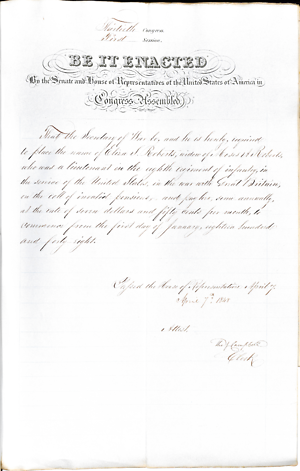 Thirtieth Congress
First Session
BE IT ENACTED
By the Senate and House of Representatives of the United States of America in
Congress Assembled
That the Secretary of War be, and he is hereby, required
to place the name of Roberts, widow of Moses Roberts,
who was a lieutenant in the eighth regiment of infantry, in
the service of the United States, in the war with Great Britain,
on the roll of invalid pensions, and pay her, semi annually,
at the rate of seven dollars and fifty cents per month, to
commence from the first day of January, eighteen hundred
and forty eight.
Passed the House of Representatives April 7,
April 7th, 1848
Attest
Campbell
Clerk